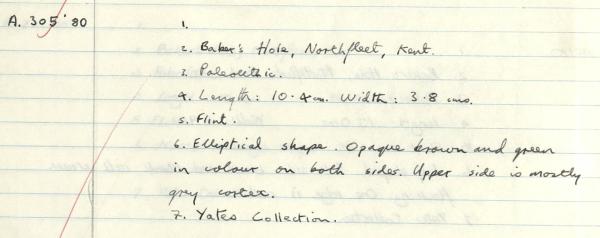 A. 305'80 1.
2. Baker's Hole, Northfleet, Kent.
3. Paleolithic.
4. Length: 10.4 cms. Width: 3.8 cms.
5. Flint.
6. Elliptical shape. Opaque brown and green
in colour on both sides. Upper side is mostly
grey cortex.
7. Yates Collection.